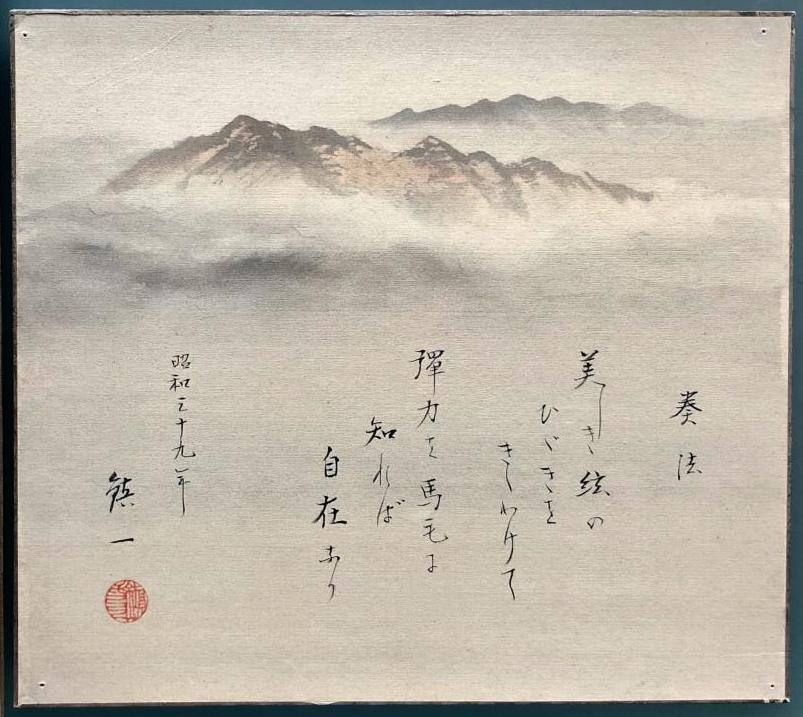 奏法
美しき絃の
ひゞきを
きゝわけて
彈力を馬毛に
知れば
自在なり
昭和三十九年
鎮一